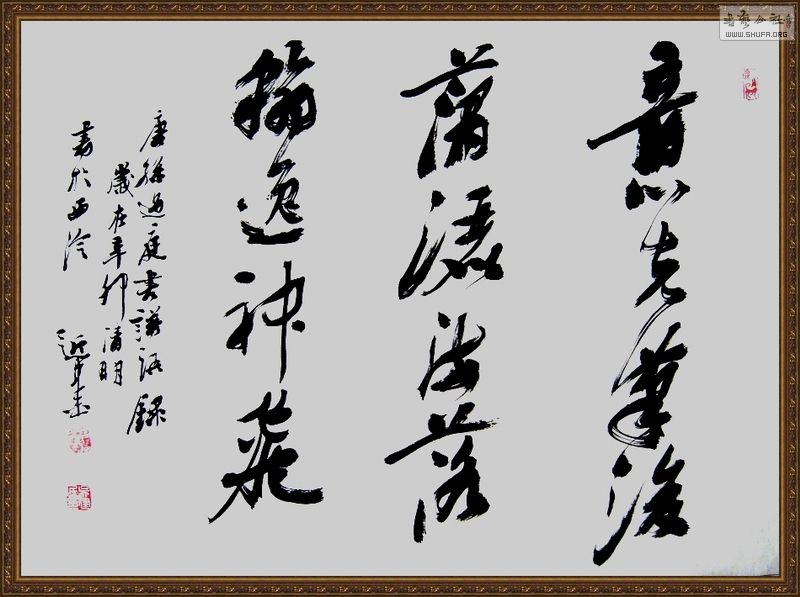 意先筆後
蕭灑流落
翰逸神飛
唐孫過庭書譜語錄
歲在辛卯清明
書於西泠
書法公社
WWW.SHUFA.ORG